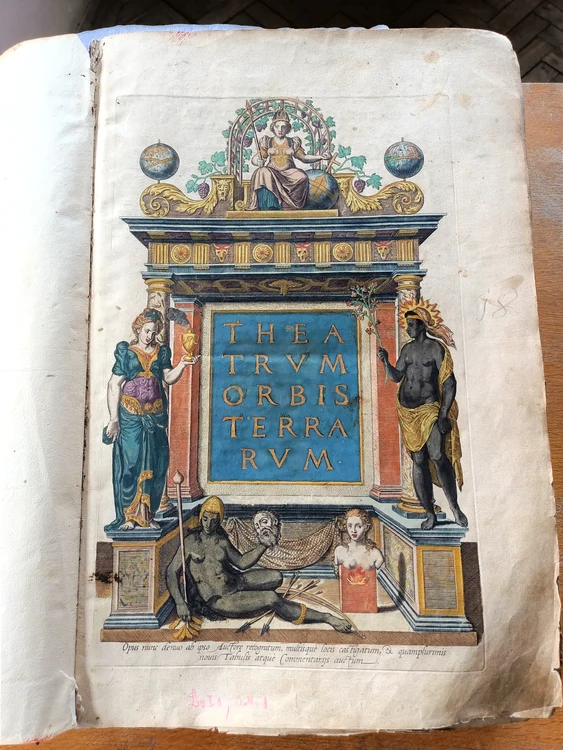 THEA
TRVM
ORBIS
TERRA
RVM
Opus nunc denuo ab ipso Auctore recognitum, multisque locis castigatum, & quamplurimis
nouis Tabulis atque Commentarijs auctum.